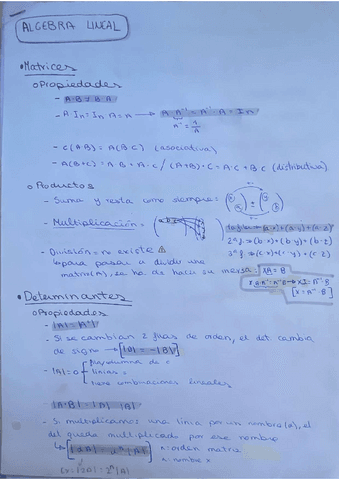 ALGEBRA LINEAL
• Matrices
o Propiedades
- A·B ≠ B·A
- A·In = In·A = A → A·A⁻¹ = A⁻¹·A = In
A⁻¹ = 1/A
- C(AB) = A(BC) (asociativa)
- A(B+C) = A·B + A·C / (A+B)·C = A·C + B·C (distributiva)
o Productos
- Suma y resta como siempre:
- Multiplicación =
- División = no existe ⚠
para pasar a dividir una
matriz (A), se ha de hacer su inversa: XA = B
[X = A⁻¹·B]
• Determinantes
o Propiedades
- |A| = |Aᵗ|
- Si se cambian 2 filas de orden, el det. cambia
de signo → |A| = -|B|
- |A| = 0
fila/columna de 0
líneas =
tiene combinaciones lineales
- |A·B| = |A|·|B|
- Si multiplicamos una línea por un nombre (α), el
det queda multiplicado por ese nombre
n: orden matriz
α: nombre x